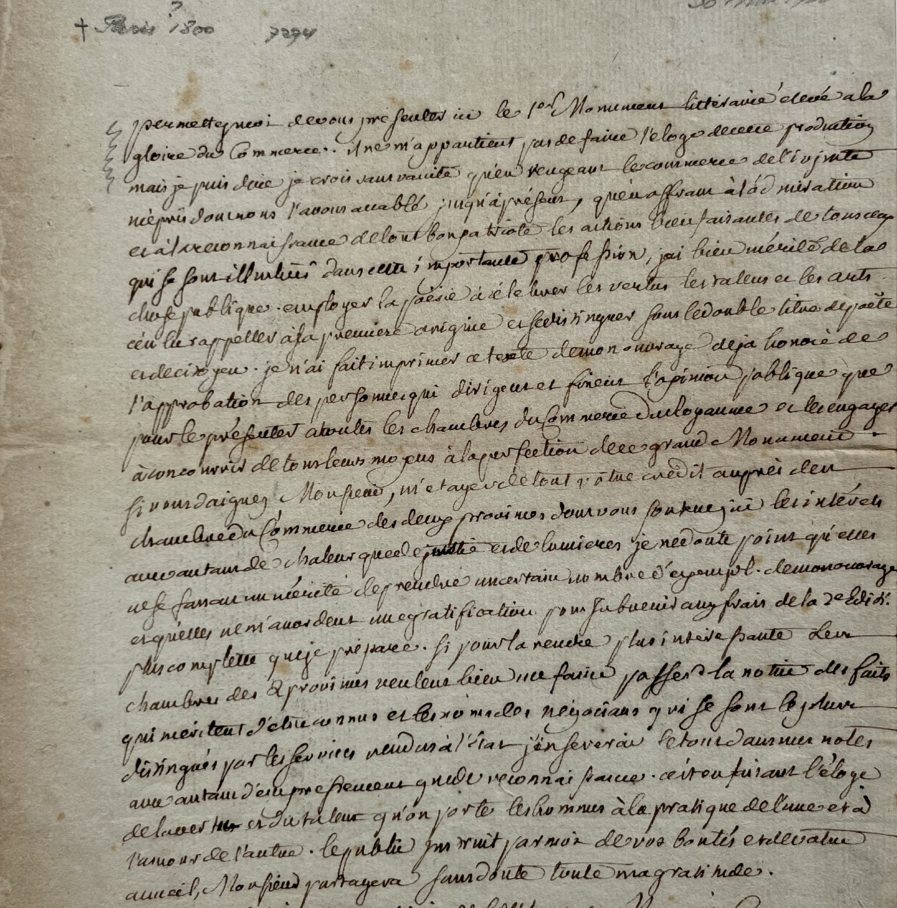 † Paris ? 1800 7274
permettez moi de vous presenter ici le 1er Monument littéraire élevé a la
gloire du Commerce.. il ne m'appartient pas de faire l'éloge de cette production
mais je puis dire je crois sans vanité qu'en vengeant le commerce de l'injuste
mépris dont nous l'avons accablé jusqu'a présent, qu'en offrant à l'admiration
et à la reconnaissance de tout bon patriote les actions bienfaisantes de tous ceux
qui se sont illustrés dans cette importante profession, j'ai bien mérité de la
chose publique. employer la poësie à célebrer les vertus les talens et les arts
c'est la rappeller à sa premiere origine et se distinguer sous le double titre de poëte
et de citoyen. je n'ai fait imprimer ce texte de mon ouvrage deja honoré de
l'approbation des personnes qui dirigent et fixent l'opinion publique que
pour le présenter a toutes les chambres du Commerce du Royaume et les engager
à concourir de tous leurs moyens à la perfection de ce grand Monument.
si vous daignez Monsieur, m'étayer de tout votre crédit auprès des
chambres du Commerce des deux provinces dont vous soutenez ici les intérêts
avec autant de chaleur que de justice et de lumieres je ne doute point qu'elles
ne se fassent un mérite de prendre un certain nombre d'exempl. de mon ouvrage
et qu'elles ne m'accordent une gratification pour subvenir aux frais de la 2e Edit.
plus complette que je prépare. si pour la rendre plus interessante les
chambres des 2 provinces veulent bien me faire passer la notice des faits
qui méritent d'etre connus et les noms des négocians qui se sont le plus
distingués par les services rendus à l'Etat j'insererai le tout dans mes notes
avec autant d'empressement que de reconnaissance. c'est en faisant l'éloge
de la vertu et du talent qu'on porte les hommes à la pratique de l'une et à
l'amour de l'autre. le public instruit par moi de vos bontés et de votre
accueil, Monsieur partagera sans doute toute ma gratitude.